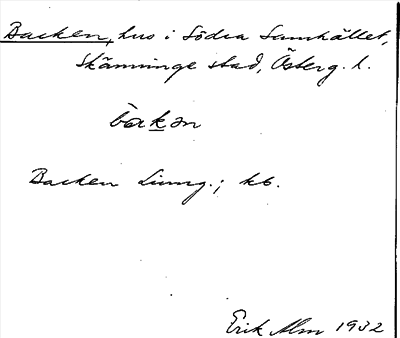 Backen, hus i Södra Samhället,
Skänninge stad, Österg. l.
bàkən
Backen Ljung.; kb.
Erik Alm 1932